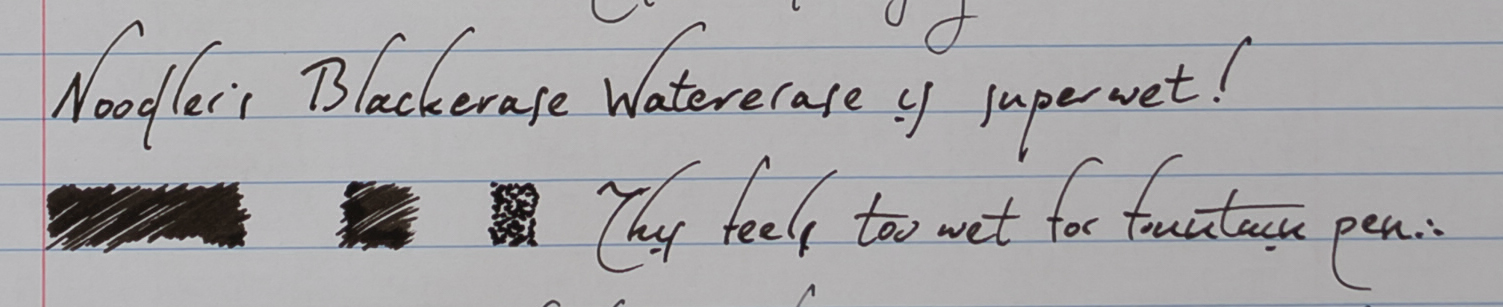 Noodler's Blackerase Watererase is superwet!
This feels too wet for fountain pen...